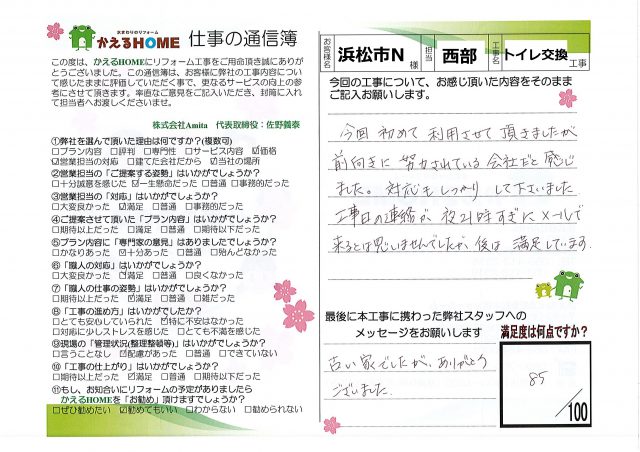 水まわりのリフォーム
かえるHOME 仕事の通信簿
この度は、かえるHOMEにリフォーム工事をご用命頂き誠にありが
とうございました。この通信簿は、お客様に弊社の工事内容について
感じたままに評価していただく事で、更なるサービスの向上の参
考にさせて頂きます。率直なご意見をご記入いただき、封筒に入れ
て担当者へお渡しくださいませ。
株式会社Amita 代表取締役：佐野義泰
①弊社を選んで頂いた理由は何ですか?(複数可)
□プラン内容 □評判 □専門性 □サービス内容 ☑価格
☑営業担当の対応 □建てた会社だから ☑当社の場所
②営業担当の「ご提案する姿勢」はいかがでしょうか？
□十分誠意を感じた ☑一生懸命だった □普通 □事務的だった
③営業担当の「対応」はいかがでしょうか？
□大変良かった ☑満足 □普通 □事務的だった
④ご提案させて頂いた「プラン内容」はいかがでしょうか？
□期待以上だった □満足 □普通 □期待以下だった
⑤プラン内容に「専門家の意見」はありましたでしょうか？
□かなりあった ☑十分あった □普通 □殆んどなかった
⑥「職人の対応」はいかがでしょうか？
□大変良かった ☑満足 □普通 □良くなかった
⑦「職人の仕事の姿勢」はいかがでしょうか？
□期待以上だった ☑満足 □普通 □雑だった
⑧「工事の進め方」はいかがでしたか？
□とても安心していられた ☑特に不安はなかった
□対応に少しストレスを感じた □とても不満を感じた
⑨現場の「管理状況(整理整頓等)」はいかがでしょうか？
□言うことなし ☑配慮があった □普通 □できていない
⑩「工事の仕上がり」はいかがでしょうか？
□期待以上だった ☑満足 □普通 □期待以下だった
⑪もし、お知合いにリフォームの予定がありましたら
かえるHOMEを「お勧め」頂けますでしょうか？
□ぜひ勧めたい ☑勧めてもいい □わからない □勧められない
お客様名 浜松市N 様 担当 西部 工事名 トイレ交換 工事
今回の工事について、お感じ頂いた内容をそのまま
ご記入お願いします。
今回初めて利用させて頂きましたが
前向きに努力されている会社だと感じ
ました。対応もしっかりして下さいました
工事日の連絡が夜21時すぎにメールで
来るとは思いませんでしたが、後は満足しています。
最後に本工事に携わった弊社スタッフへの
メッセージをお願いします
満足度は何点ですか？
古い家でしたが、ありがとう
ございました。
85
/100